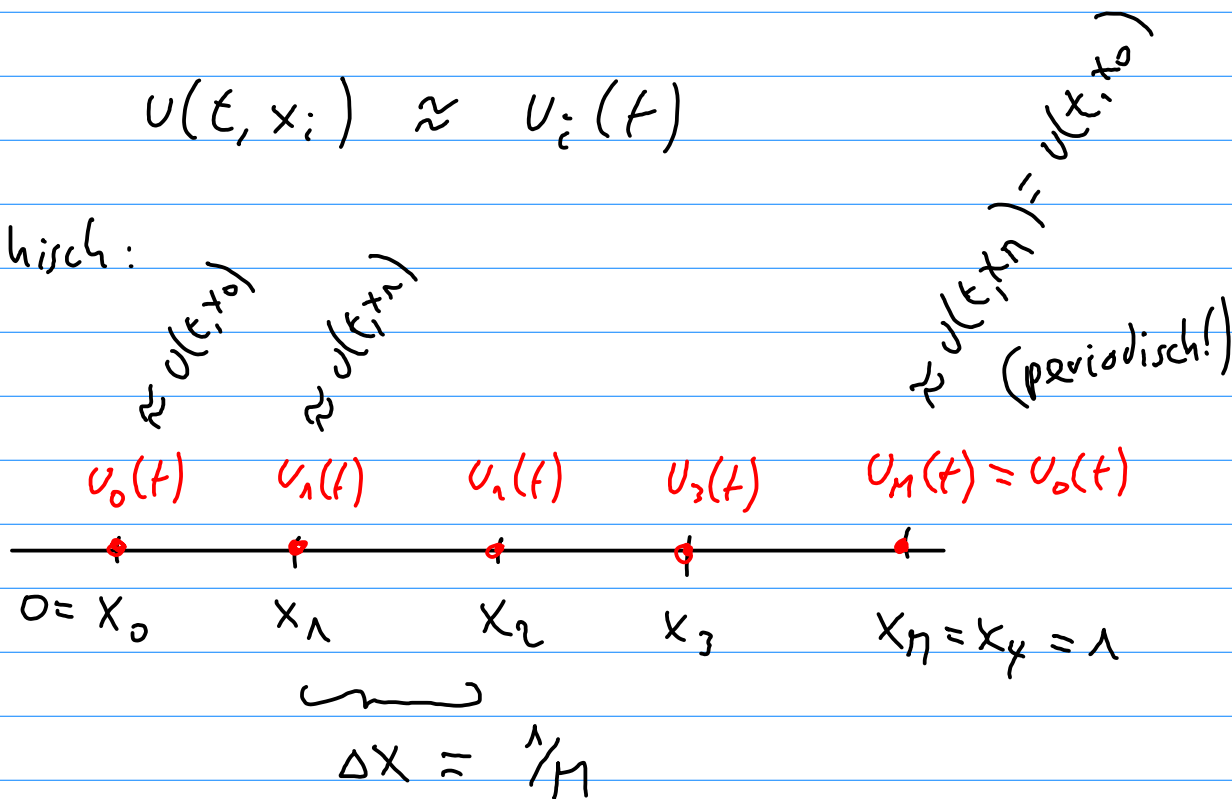 u(t, x_i) ≈ u_i(t)
hisch:
≈ u(t, x_0) ≈ u(t, x_1) ≈ u(t, x_M) = u(t, x_0)
(periodisch!)
u_0(t) u_1(t) u_2(t) u_3(t) u_M(t) = u_0(t)
0 = x_0 x_1 x_2 x_3 x_M = x_4 = 1
Δx = 1/M